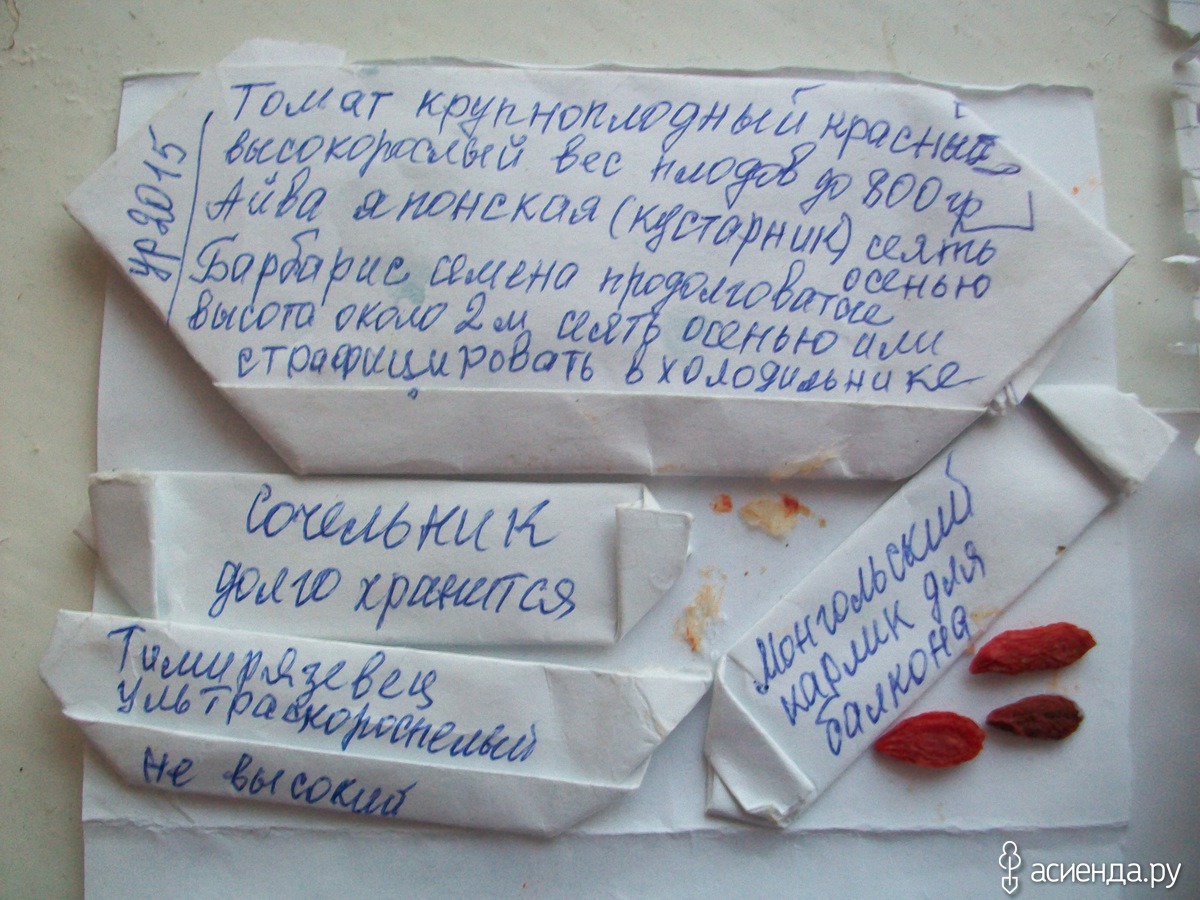 ур 2015
Томат крупноплодный красный
высокорослый вес плодов до 800 гр
Айва японская (кустарник) сеять
осенью
Барбарис семена продолговатые
высота около 2 м сеять осенью или
страфицировать в холодильнике
Сочельник
долго хранится
Тимирязевец
ультраскороспелый
не высокий
Монгольский
карлик для
балкона
асиенда.ру